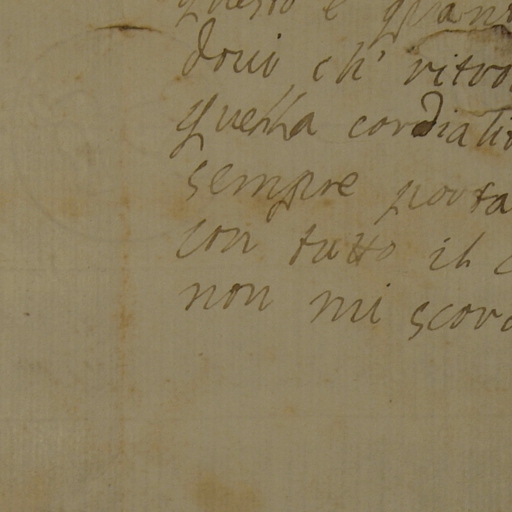 questo è quan
doui ch' ritro
quella cordialit
sempre porta
con tutto il c
non mi scord